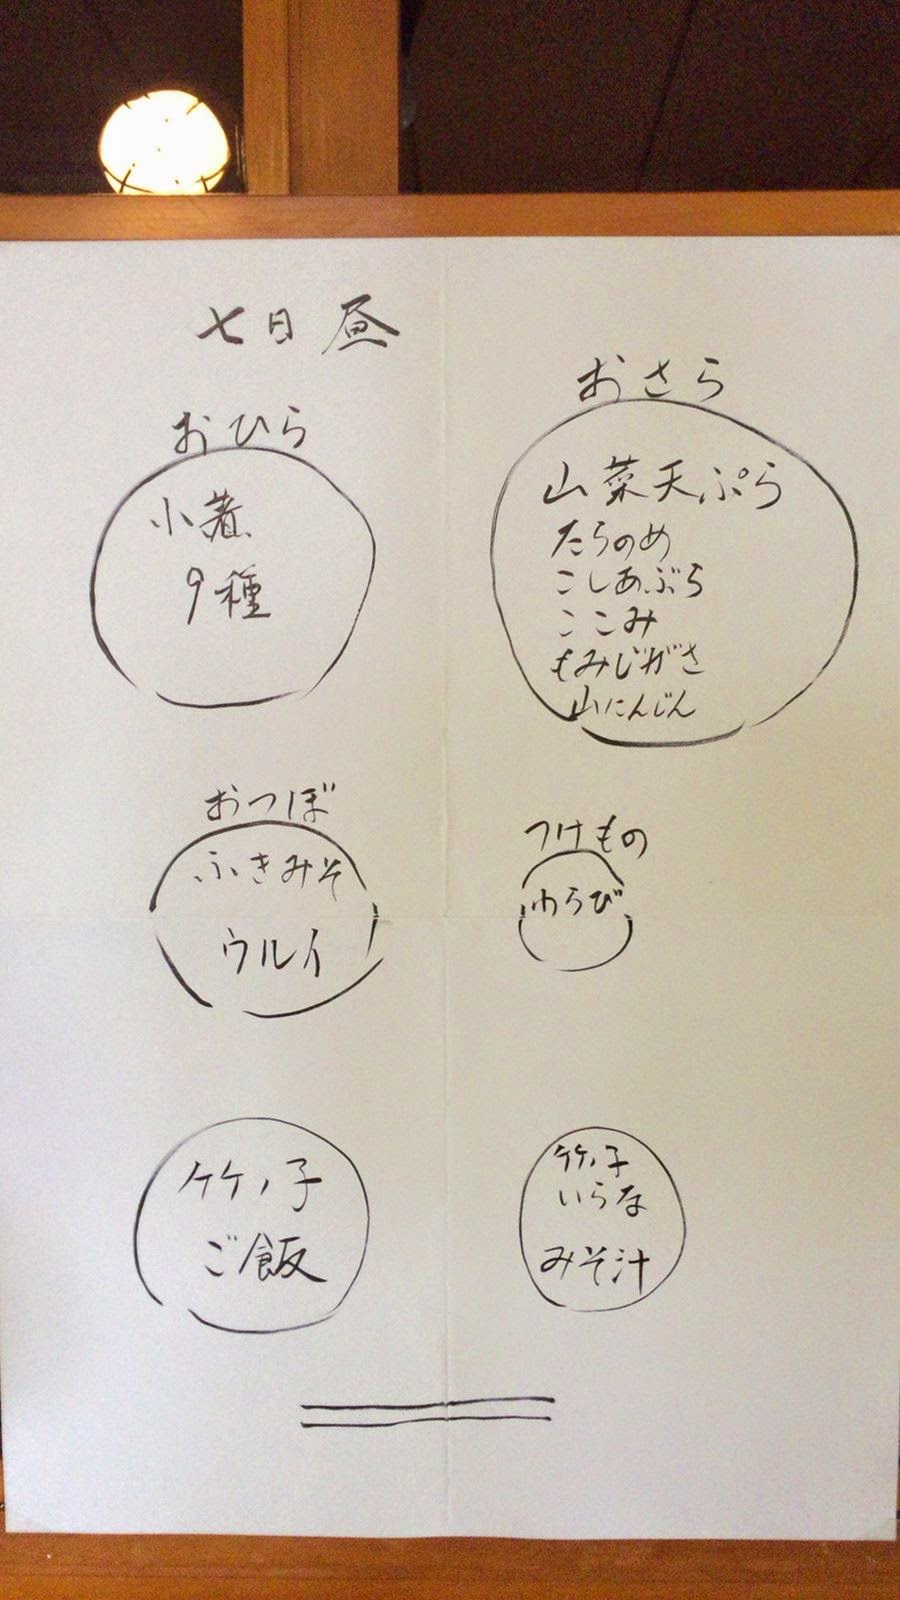 七日 昼
おひら
小煮
9種
おさら
山菜天ぷら
たらのめ
こしあぶら
ここみ
もみじがさ
山にんじん
おつぼ
ふきみそ
ウルイ
つけもの
わらび
竹ノ子
ご飯
竹ノ子
いらな
みそ汁